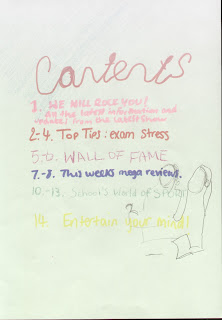 Contents
1. WE WILL ROCK YOU!
All the latest information and
from the latest show
2-4. Top Tips: exam Stress
5-6. WALL OF FAME
7.-9. This weeks mega reviews.
10.-13. School's World of
14. Entertain your mind!